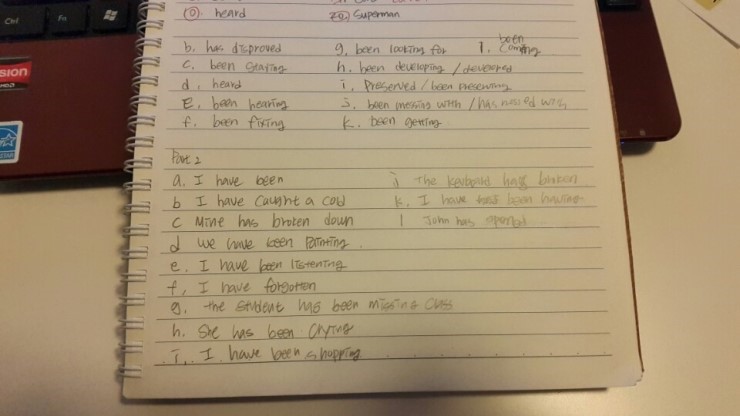 Ctrl
Fn
sion
(0). heard
20. Superman
b. has disproved
g. been looking for
l. been coming
c. been staying
h. been developing / developed
d. heard
i. Preserved / been preserving
E. been hearing
j. been messing with / has messed with
f. been fixing
k. been getting
Part 2
a. I have been
j The keyboard has broken
b I have caught a cold
k. I have been having
c Mine has broken down
l John has opened
d We have been Painting
e. I have been listening
f, I have forgotten
g. the student has been missing class
h. She has been crying
i. I have been shopping